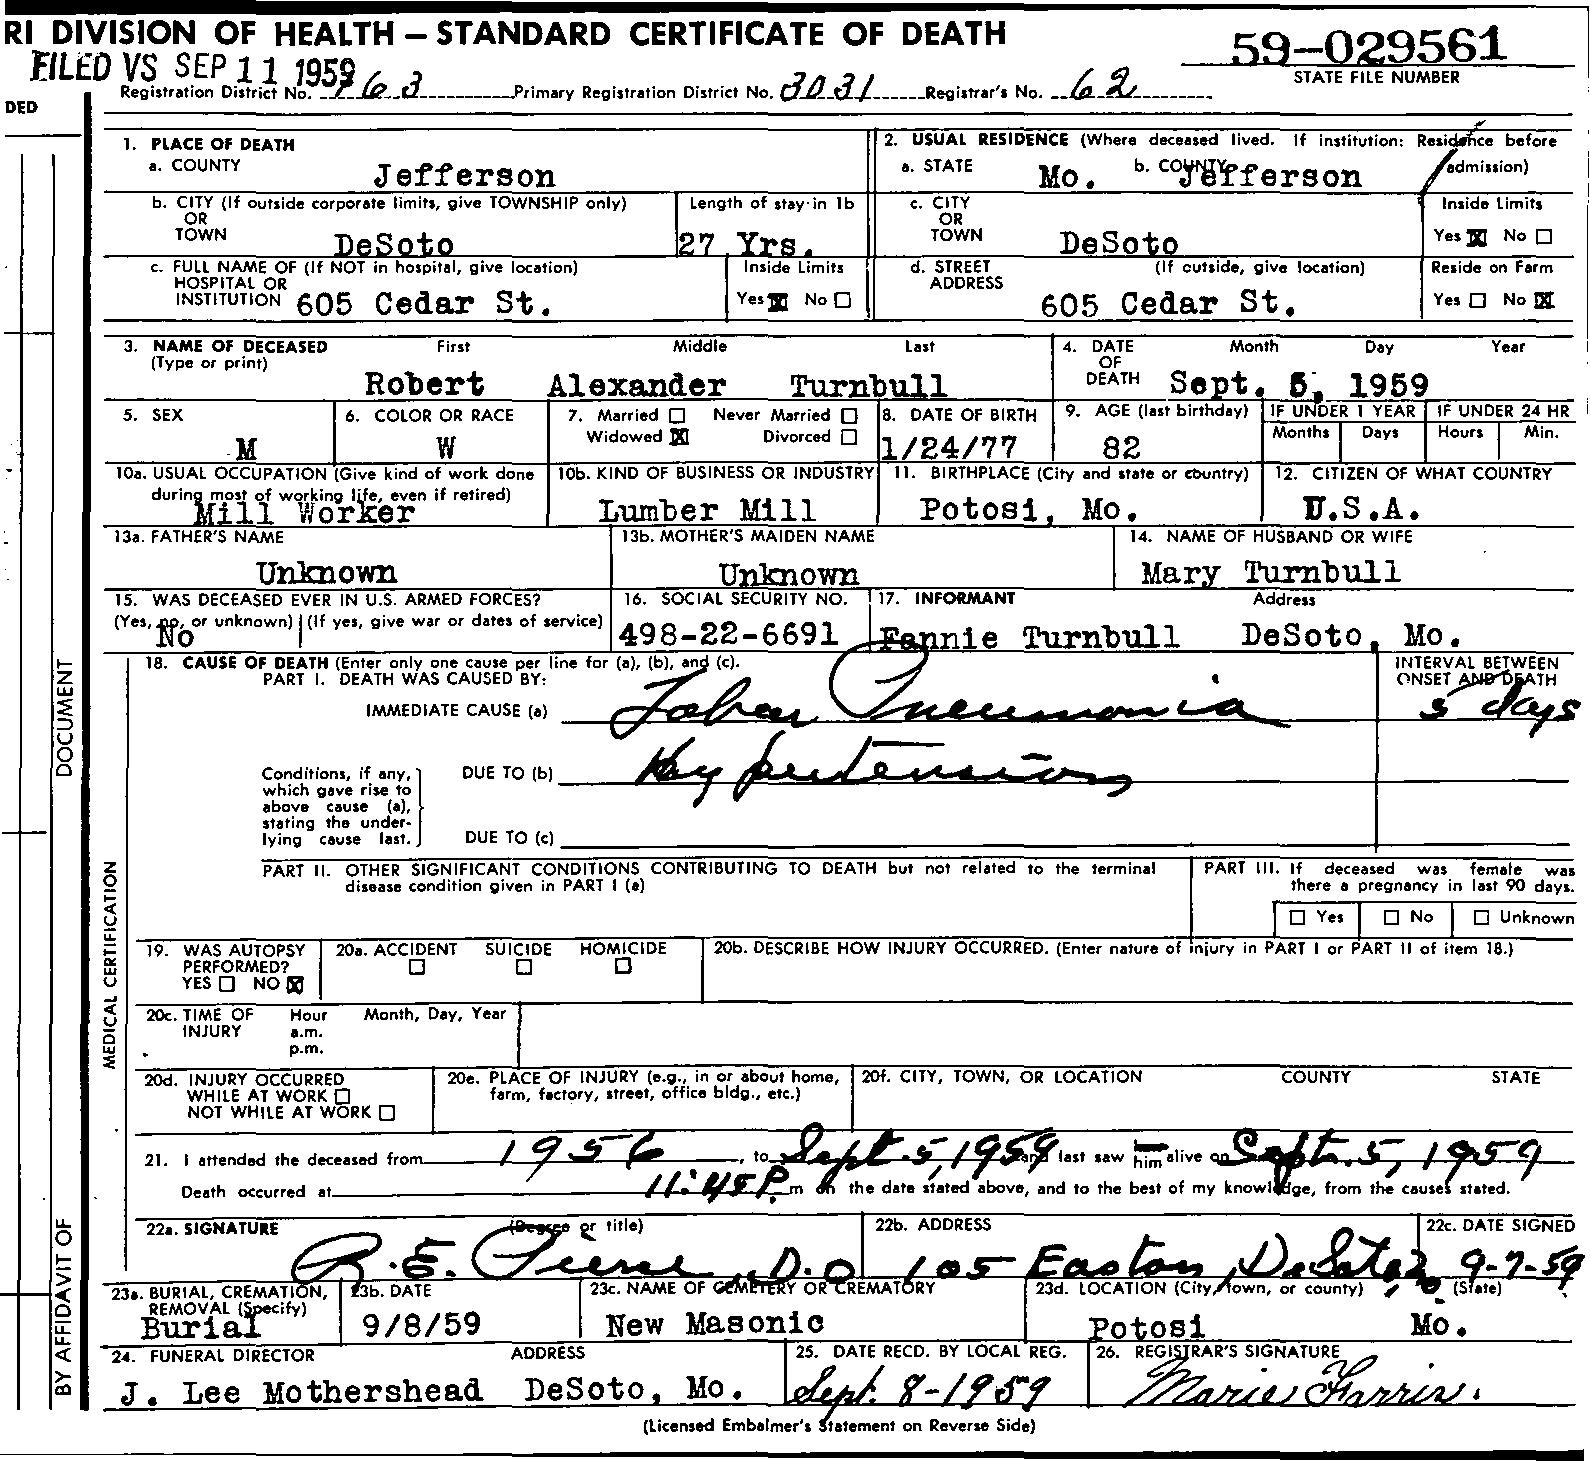 RI DIVISION OF HEALTH — STANDARD CERTIFICATE OF DEATH
59-029561
STATE FILE NUMBER
FILED VS SEP 11 1959
Registration District No. 163 Primary Registration District No. 3031 Registrar's No. 62
DED
1. PLACE OF DEATH
a. COUNTY Jefferson
2. USUAL RESIDENCE (Where deceased lived. If institution: Residence before admission)
a. STATE Mo. b. COUNTY Jefferson
b. CITY (If outside corporate limits, give TOWNSHIP only) OR TOWN DeSoto
Length of stay in 1b 27 Yrs.
c. CITY OR TOWN DeSoto
Inside Limits Yes ☒ No ☐
c. FULL NAME OF (If NOT in hospital, give location) HOSPITAL OR INSTITUTION 605 Cedar St.
Inside Limits Yes ☒ No ☐
d. STREET ADDRESS (If outside, give location) 605 Cedar St.
Reside on Farm Yes ☐ No ☒
3. NAME OF DECEASED (Type or print) First Middle Last
Robert Alexander Turnbull
4. DATE OF DEATH Month Day Year
Sept. 5, 1959
5. SEX M
6. COLOR OR RACE W
7. Married ☐ Never Married ☐ Widowed ☒ Divorced ☐
8. DATE OF BIRTH 1/24/77
9. AGE (last birthday) 82
IF UNDER 1 YEAR Months Days
IF UNDER 24 HR Hours Min.
10a. USUAL OCCUPATION (Give kind of work done during most of working life, even if retired) Mill Worker
10b. KIND OF BUSINESS OR INDUSTRY Lumber Mill
11. BIRTHPLACE (City and state or country) Potosi, Mo.
12. CITIZEN OF WHAT COUNTRY U.S.A.
13a. FATHER'S NAME Unknown
13b. MOTHER'S MAIDEN NAME Unknown
14. NAME OF HUSBAND OR WIFE Mary Turnbull
15. WAS DECEASED EVER IN U.S. ARMED FORCES? (Yes, no, or unknown) (If yes, give war or dates of service) No
16. SOCIAL SECURITY NO. 498-22-6691
17. INFORMANT Address
Fannie Turnbull DeSoto, Mo.
18. CAUSE OF DEATH (Enter only one cause per line for (a), (b), and (c).
PART I. DEATH WAS CAUSED BY:
INTERVAL BETWEEN ONSET AND DEATH
IMMEDIATE CAUSE (a) Lobar Pneumonia 5 days
Conditions, if any, which gave rise to above cause (a), stating the underlying cause last.
DUE TO (b) Hypertension
DUE TO (c)
PART II. OTHER SIGNIFICANT CONDITIONS CONTRIBUTING TO DEATH but not related to the terminal disease condition given in PART I (a)
PART III. If deceased was female was there a pregnancy in last 90 days.
☐ Yes ☐ No ☐ Unknown
19. WAS AUTOPSY PERFORMED? YES ☐ NO ☒
20a. ACCIDENT ☐ SUICIDE ☐ HOMICIDE ☐
20b. DESCRIBE HOW INJURY OCCURRED. (Enter nature of injury in PART I or PART II of item 18.)
20c. TIME OF INJURY Hour a.m. p.m. Month, Day, Year
20d. INJURY OCCURRED WHILE AT WORK ☐ NOT WHILE AT WORK ☐
20e. PLACE OF INJURY (e.g., in or about home, farm, factory, street, office bldg., etc.)
20f. CITY, TOWN, OR LOCATION COUNTY STATE
21. I attended the deceased from 1956, to Sept. 5, 1959 and last saw him alive on Sept. 5, 1959
Death occurred at 11:45 P.m on the date stated above, and to the best of my knowledge, from the causes stated.
22a. SIGNATURE (Degree or title) R.E. D.O
22b. ADDRESS 105 Easton, DeSoto, Mo
22c. DATE SIGNED 9-7-59
23a. BURIAL, CREMATION, REMOVAL (Specify) Burial
23b. DATE 9/8/59
23c. NAME OF CEMETERY OR CREMATORY New Masonic
23d. LOCATION (City, town, or county) (State) Potosi Mo.
24. FUNERAL DIRECTOR ADDRESS
J. Lee Mothershead DeSoto, Mo.
25. DATE RECD. BY LOCAL REG. Sept. 8-1959
26. REGISTRAR'S SIGNATURE Marie Harris.
(Licensed Embalmer's Statement on Reverse Side)
DOCUMENT
MEDICAL CERTIFICATION
BY AFFIDAVIT OF